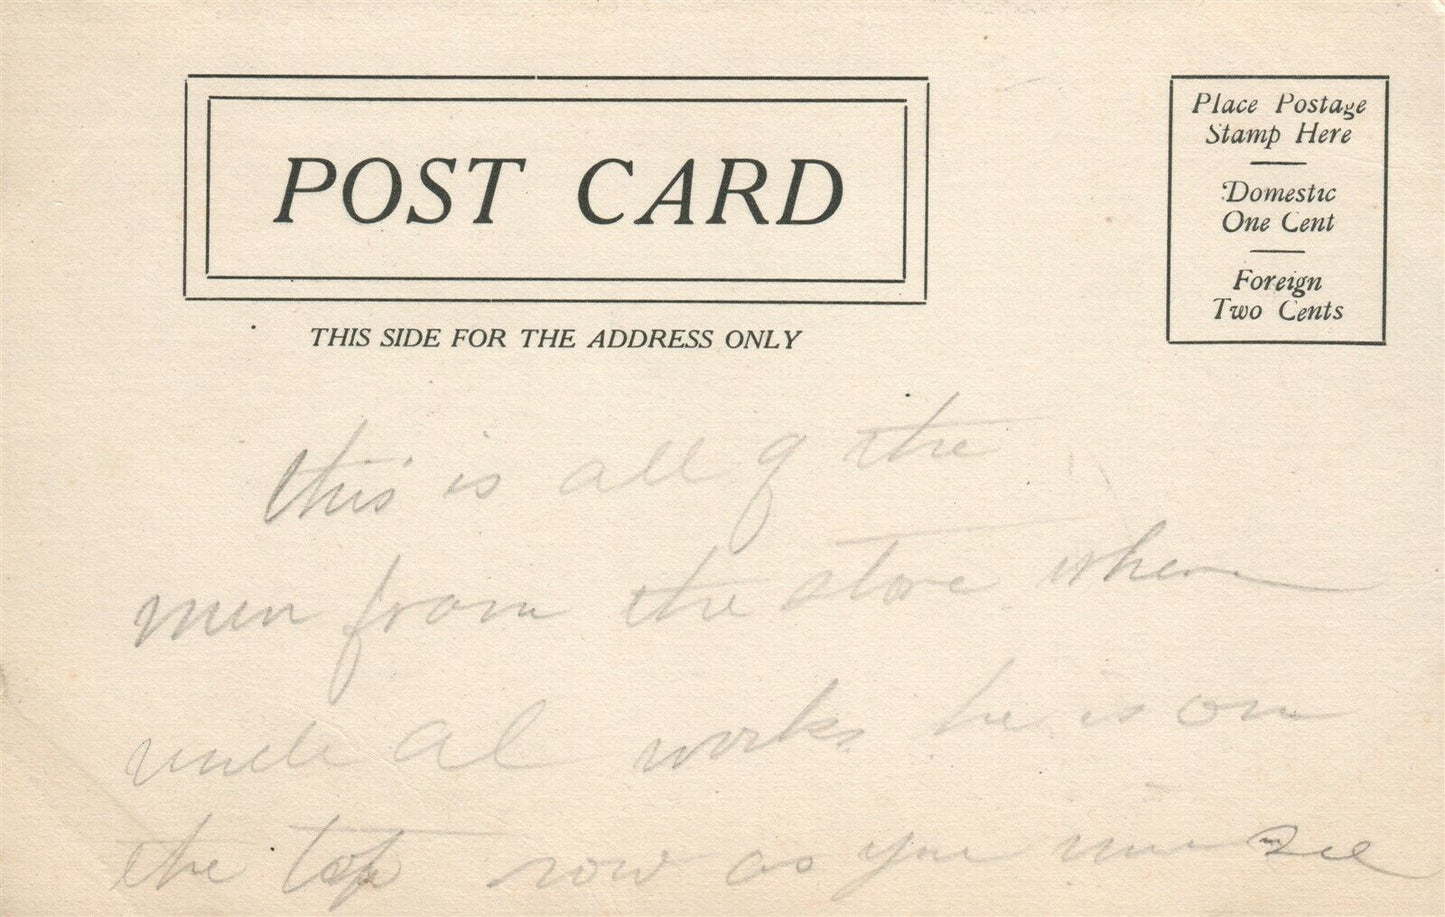 POST CARD
THIS SIDE FOR THE ADDRESS ONLY
Place Postage
Stamp Here
Domestic
One Cent
Foreign
Two Cents
this is all of the
men from the store where
uncle Al works he is on
the top row as you see